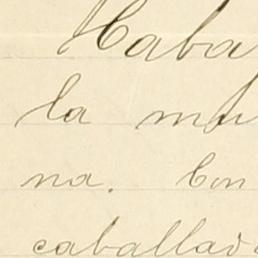 Haba
la mu
na. Con
caballad